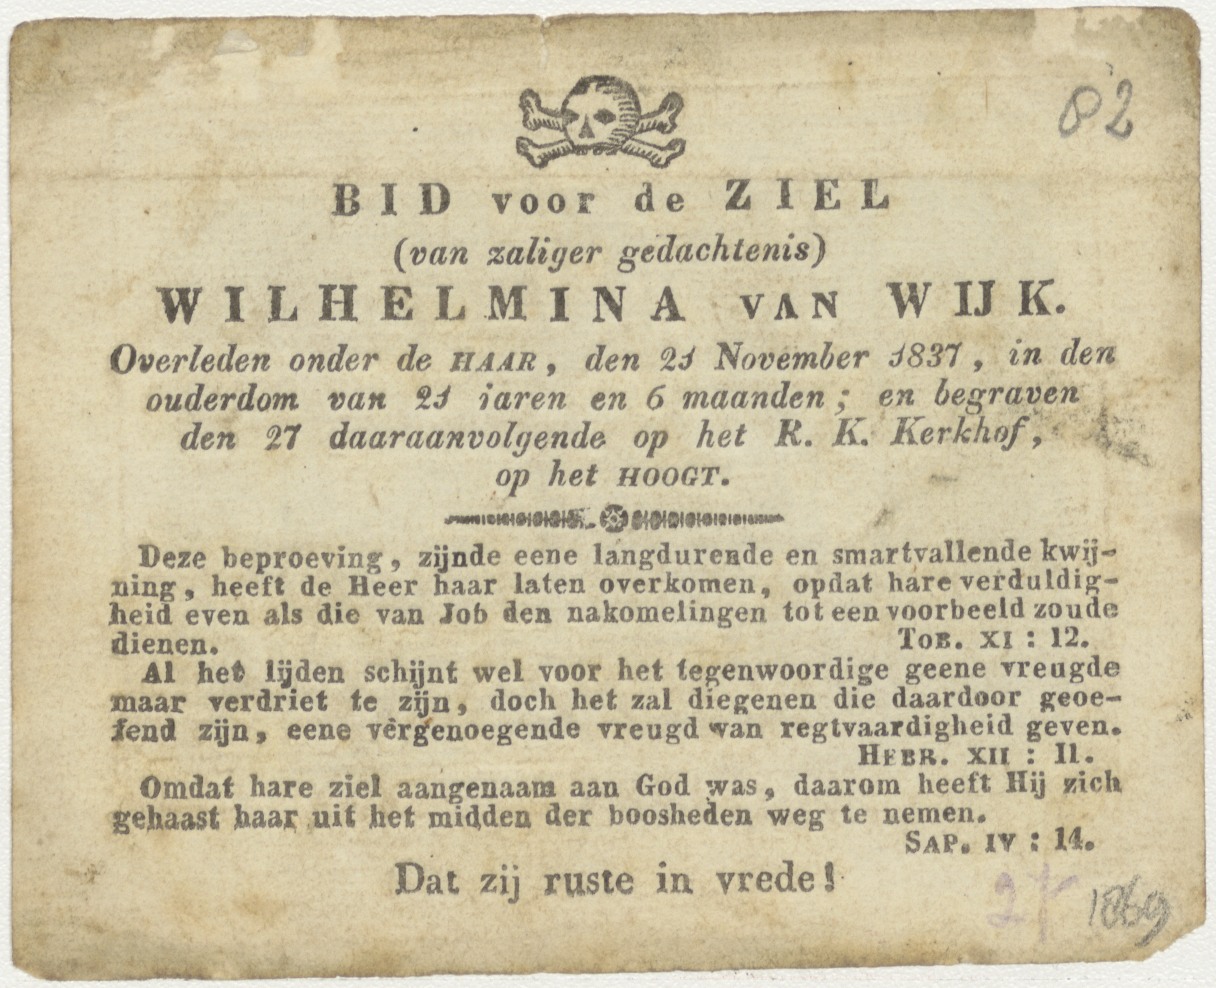 82
BID voor de ZIEL
(van zaliger gedachtenis)
WILHELMINA VAN WIJK.
Overleden onder de HAAR, den 21 November 1837, in den
ouderdom van 21 iaren en 6 maanden; en begraven
den 27 daaraanvolgende op het R. K. Kerkhof,
op het HOOGT.
Deze beproeving, zijnde eene langdurende en smartvallende kwij-
ning, heeft de Heer haar laten overkomen, opdat hare verduldig-
heid even als die van Job den nakomelingen tot een voorbeeld zoude
dienen. TOB. XI : 12.
Al het lijden schijnt wel voor het tegenwoordige geene vreugde
maar verdriet te zijn, doch het zal diegenen die daardoor geoe-
fend zijn, eene vergenoegende vreugd van regtvaardigheid geven.
HEBR. XII : 11.
Omdat hare ziel aangenaam aan God was, daarom heeft Hij zich
gehaast haar uit het midden der boosheden weg te nemen.
SAP. IV : 14.
Dat zij ruste in vrede!
1869